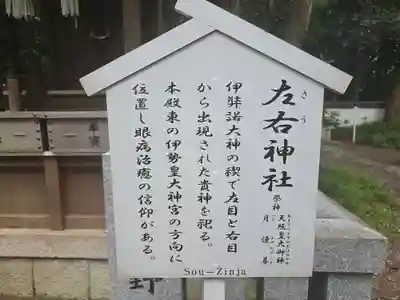 Sou-Zinja
左右神社
さう
祭神
天照皇大御神
月讀尊
伊弉諾大神の禊で左目と右目
から出現された貴神を祀る。
本殿東の伊勢皇大神宮の方向に
位置し眼病治癒の信仰がある。
Sou-Zinja
野